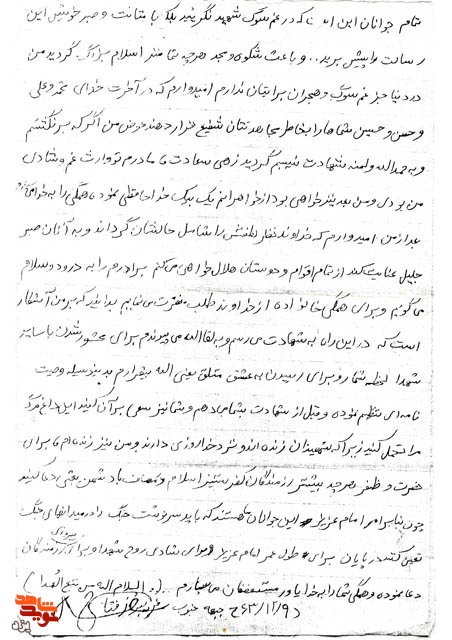 تمام جوانان این است که در غم سوگ شهید نگریند بلکه با متانت و صبر خویش این
رسالت را پیش برید.. و باعث شکوه و مجد هر چه تمامتر اسلام بزرگ گردید من
در دنیا جز غم سوگ و هجران برایتان ندارم امیدوارم که در آخرت خدای محمد و علی
و حسن و حسین شماها را بخاطر مجاهدتتان شفیع قرار دهند عوض من اگر که برنگشتم
و به حمدالله و المنه شهادت نصیبم گردید زهی سعادت مادرم تو وارث غم و شادی
من بودی و من خواهی بود از خواهرانم یک یک خداحافظی نموده همگی را به خدا
بعد از من امیدوارم که خداوند نظر لطفش را شامل حالتان گرداند و به آنان صبر
جلیل عنایت کند از تمام اقوام و دوستان حلال خواهی می‌کنم برادرم را به درود و سلام
می‌گویم و برای همگی خانواده از خداوند طلب مغفرت می‌نمایم بدانید که بر من آشکار
است که در این راه به شهادت می‌رسم و به لقاالله می‌پیوندم برای محشور شدن با سایر
شهدا لحظه شمارم و برای رسیدن به عشق مطلق یعنی الله بیقرارم بدینوسیله وصیت
نامه‌ای تنظیم نموده و قبل از شهادت بشما میدهم و شما نیز سعی بر آن کنید این داغ مرگ
مرا تحمل کنید زیرا که شهیدان زنده اند و نزد خدا روزی دارند و من نیز زنده ام برای
نصرت و ظفر هر چه بیشتر رزمندگان کفرستیز اسلام و دشمن بعثی دعا کنید
چون بنا بر امر امام عزیز این جوانان ما هستند که باید سرنوشت جنگ را در میدانهای جنگ
تعیین کنند در پایان برای طول عمر امام عزیز و برای شادی روح شهدا و برای پیروزی رزمندگان
دعا نموده و همگی شما را به خدا یاور مستضعفان می‌سپارم ... (: السلام علی من تبع الهدا)
۶۳/۱۲/۹ جبهه جنوب